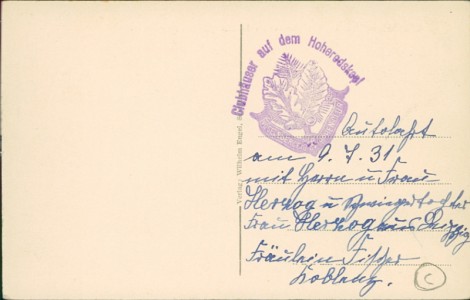 Clubhäuser auf dem Hoherodskopf
Verlag: Wilhelm Engel,
Autofahrt
am 9.7.31
mit Herrn u Frau
Herzog u Schwiegertochter
Frau Herzog aus Leipzig
Fräulein Fischer
Koblenz.
C